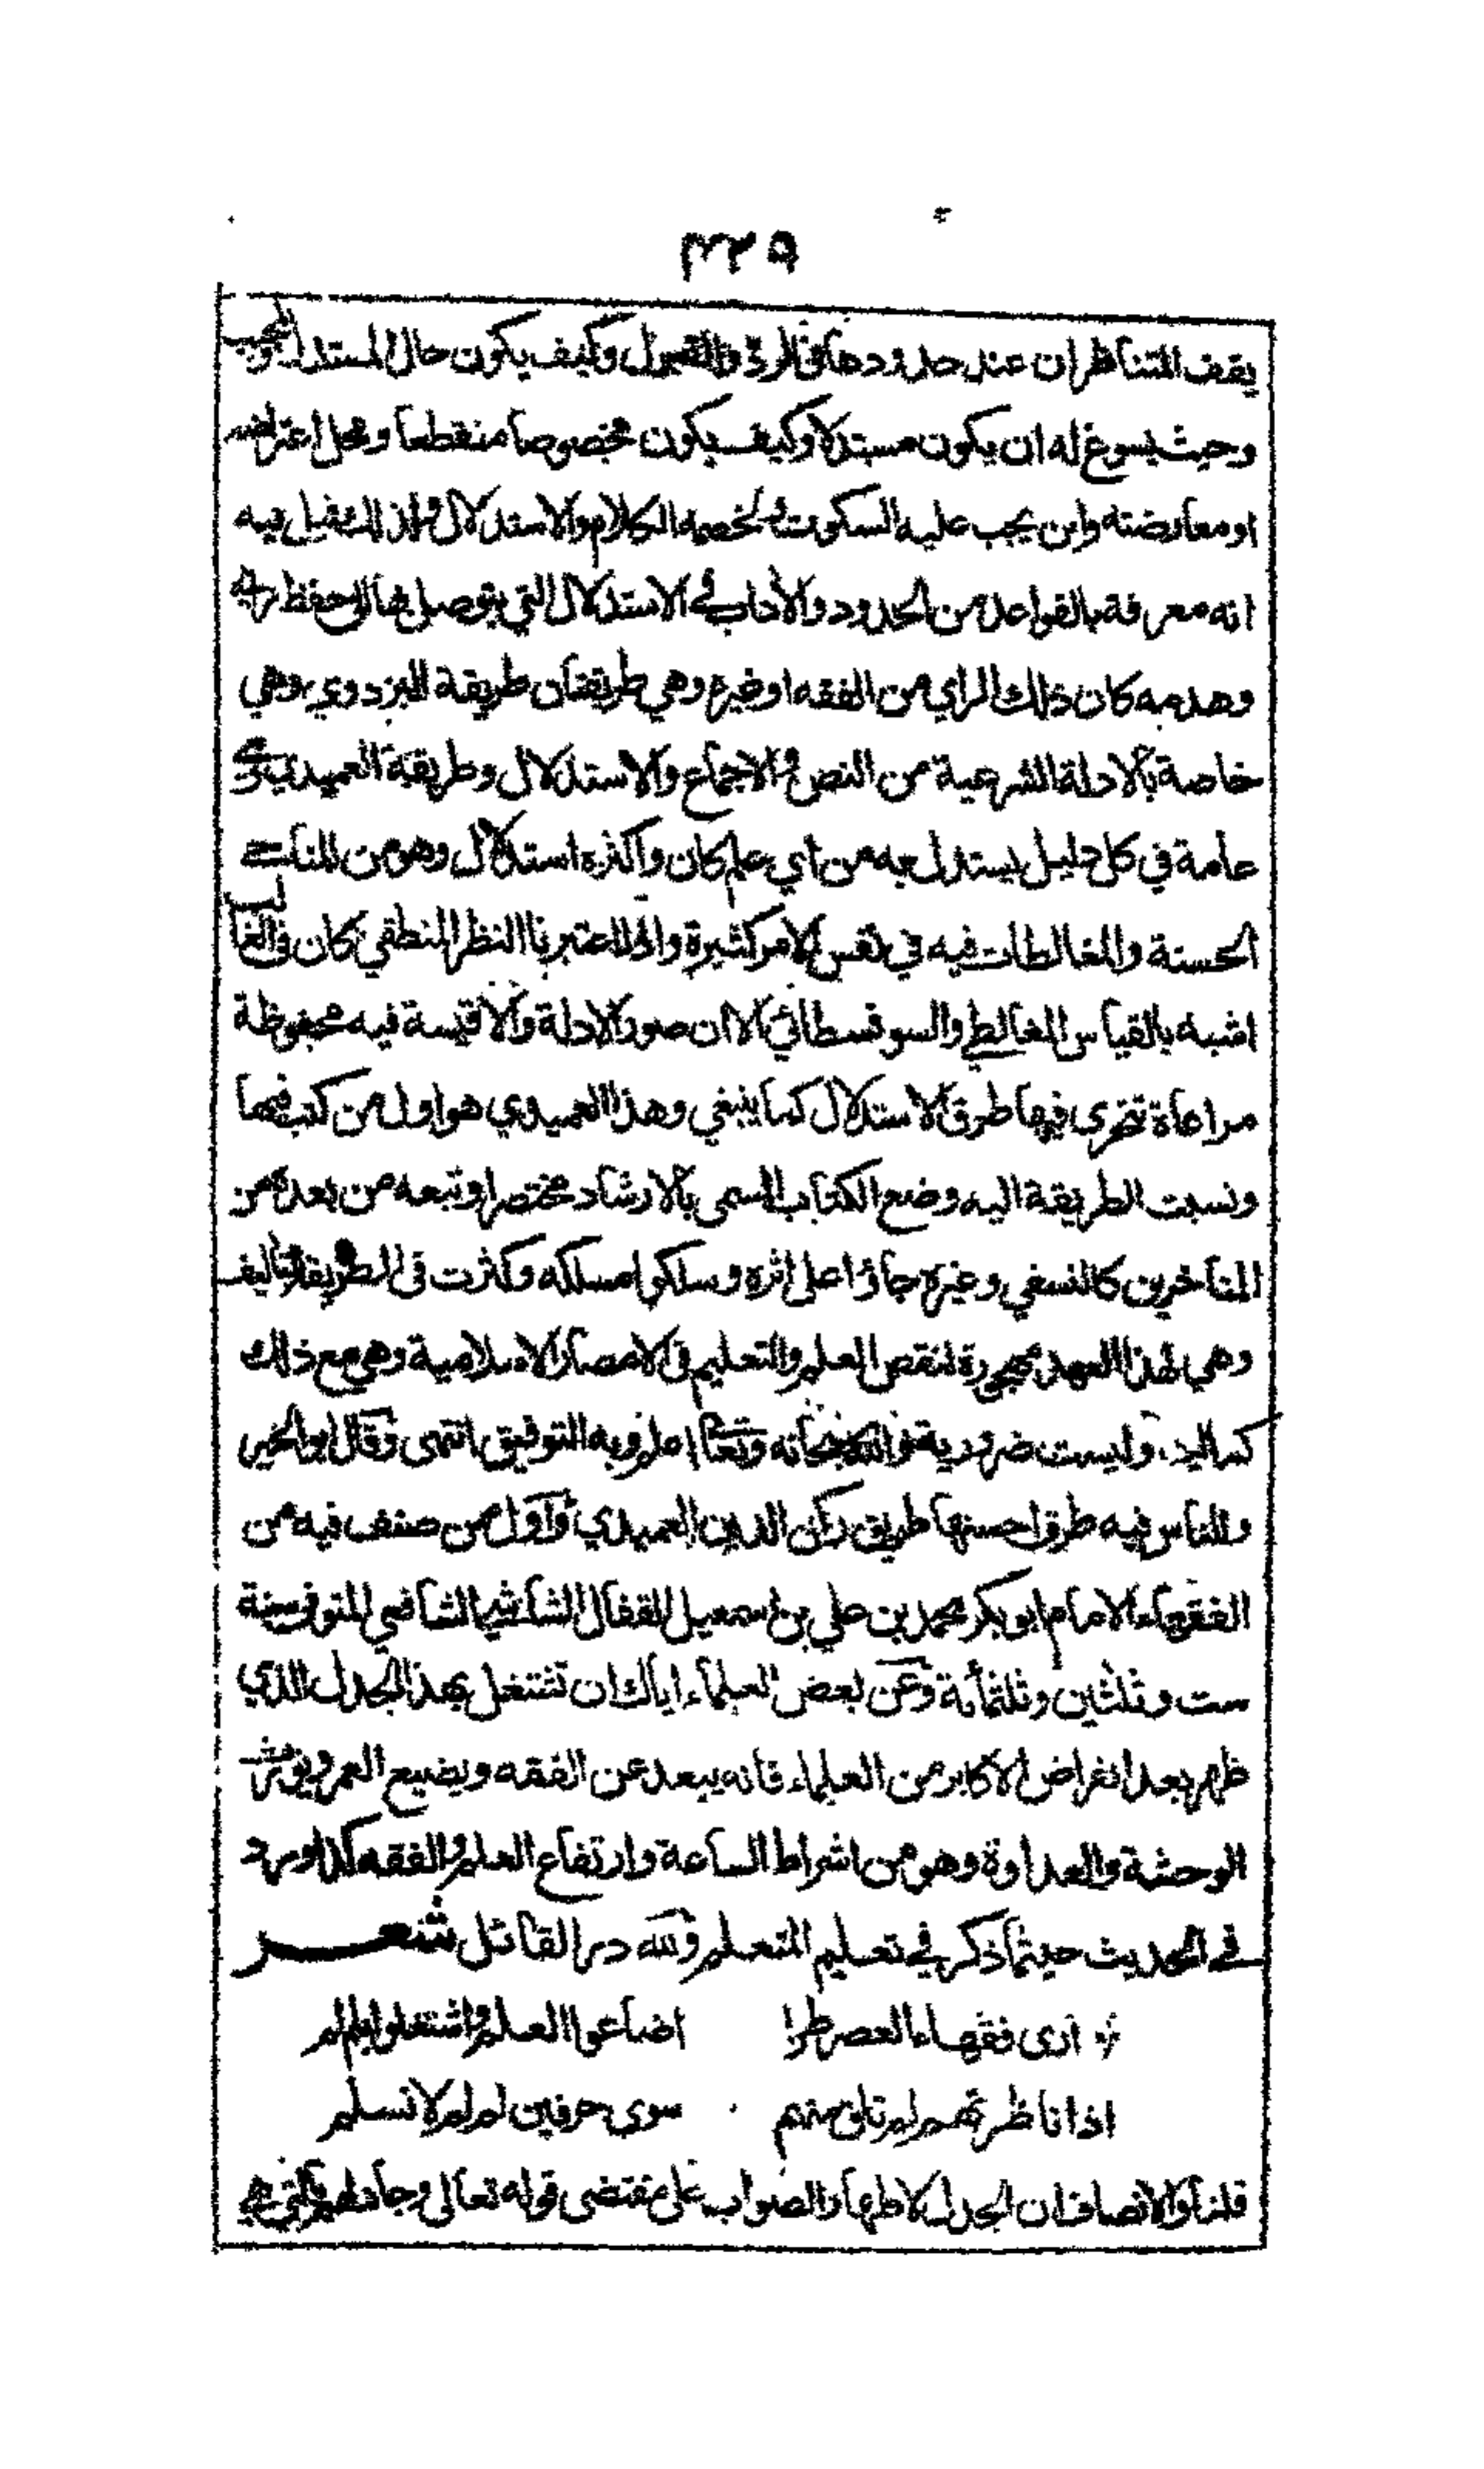 ٣٢٥
يقف المتناظران عند حدودها في الرد والقبول وكيف يكون حال المستدل والمجيب
وحيث يسوغ له ان يكون مستدلا وكيف يكون مخصوصا منقطعا ومحل اعتراضه
او معارضته واين يجب عليه السكوت ولخصمه الكلام والاستدلال ولذا قيل فيه
انه معرفة بالقواعد من الحدود والآداب في الاستدلال التي يتوصل بها الى حفظ راي
وهدمه كان ذلك الراي من الفقه او غيره وهي طريقتان طريقة البزدوي وهي
خاصة بالادلة الشرعية من النص والاجماع والاستدلال وطريقة العميدي وهي
عامة في كل دليل يستدل به من اي علم كان واكثره استدلال وهو من المناحي
الحسنة والمغالطات فيه في نفس الامر كثيرة واذا اعتبرنا النظر المنطقي كان في الغالب
اشبه بالقياس المغالطي والسوفسطائي الا ان صور الادلة والاقيسة فيه محفوظة
مراعاة تتحرى فيها طرق الاستدلال كما ينبغي وهذا العميدي هو اول من كتب فيها
ونسبت الطريقة اليه وضع الكتاب المسمى بالارشاد مختصرا وتبعه من بعده من
المتاخرين كالنسفي وغيره جاؤا على اثره وسلكوا مسلكه وكثرت في الطريقة التآليف
وهي لهذا العهد مهجورة لنقص العلم والتعليم في الامصار الاسلامية وهي مع ذلك
كمالية وليست ضرورية والله سبحانه وتعالى اعلم وبه التوفيق انتهى وقال ابو الخير
وللناس فيه طرق احسنها طريق ركن الدين العميدي واول من صنف فيه من
الفقهاء الامام ابو بكر محمد بن علي بن اسمعيل القفال الشاشي الشافعي المتوفى سنة
ست وثلثين وثلثمائة وعن بعض العلماء اياك ان تشتغل بهذا الجدل الذي
ظهر بعد انقراض الاكابر من العلماء فانه يبعد عن الفقه ويضيع العمر ويورث
الوحشة والعداوة وهو من اشراط الساعة وارتفاع العلم والفقه كذا ورد
في الحديث حيثما ذكر في تعليم المتعلم ولله در القائل شعر
ارى فقهاء العصر طرا اضاعوا العلم واشتغلوا بلم لم
اذا ناظرتهم لم تلق منهم سوى حرفين لم لم لا نسلم
قلنا والانصاف ان الجدل لاظهار الصواب على مقتضى قوله تعالى وجادلهم بالتي هي